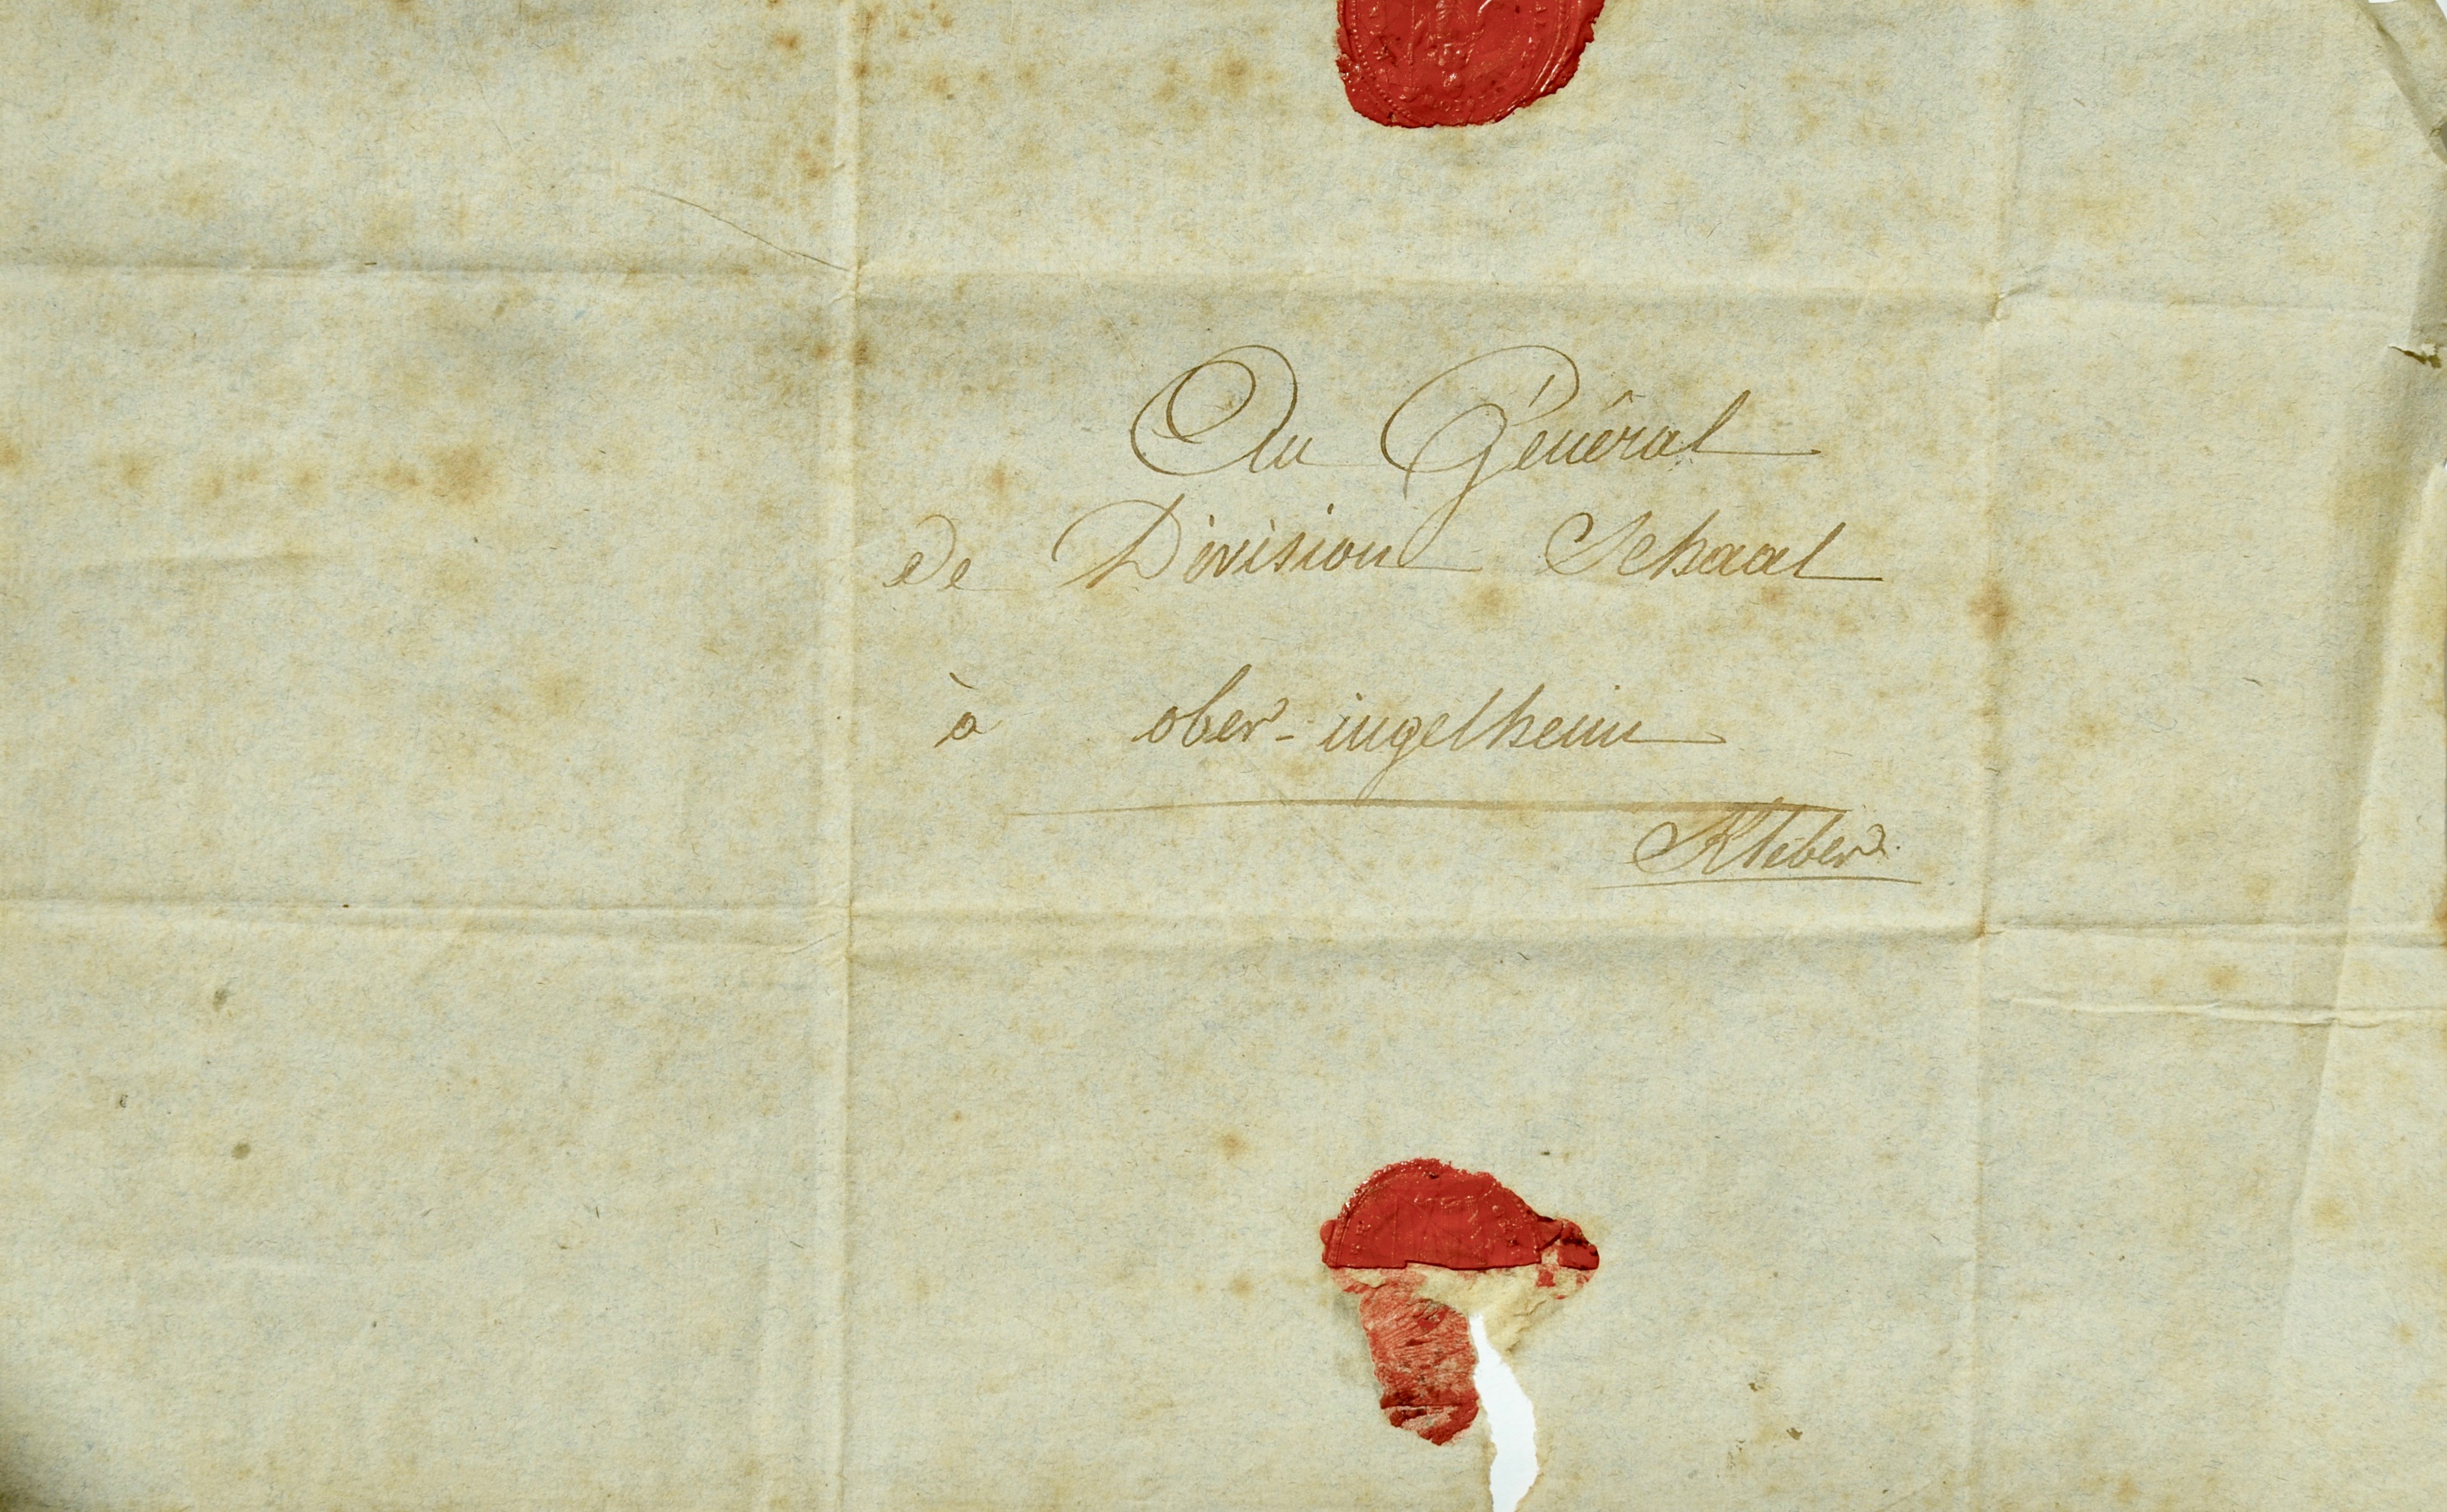 Au Général
de Division Schaal
à ober-ingelheim
Kleber